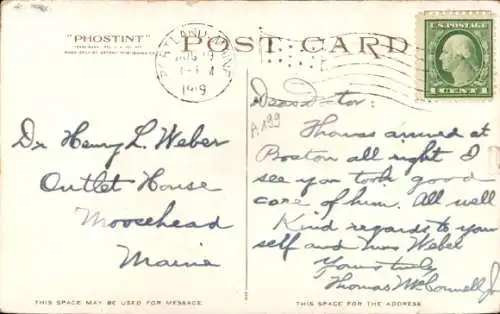 "PHOSTINT"
POST CARD
AUG 19
1919
U.S. POSTAGE
1 CENT 1
Dear Doctor:
A.199
Thomas arrived at
Boston all right I
see you took good
care of him. All well
Kind regards to your
self and Mrs Weber
Yours truly
Thomas McConnell Jr
Dr Henry L. Weber
Outlet House
Moosehead
Maine
THIS SPACE MAY BE USED FOR MESSAGE.
THIS SPACE IS FOR THE ADDRESS.